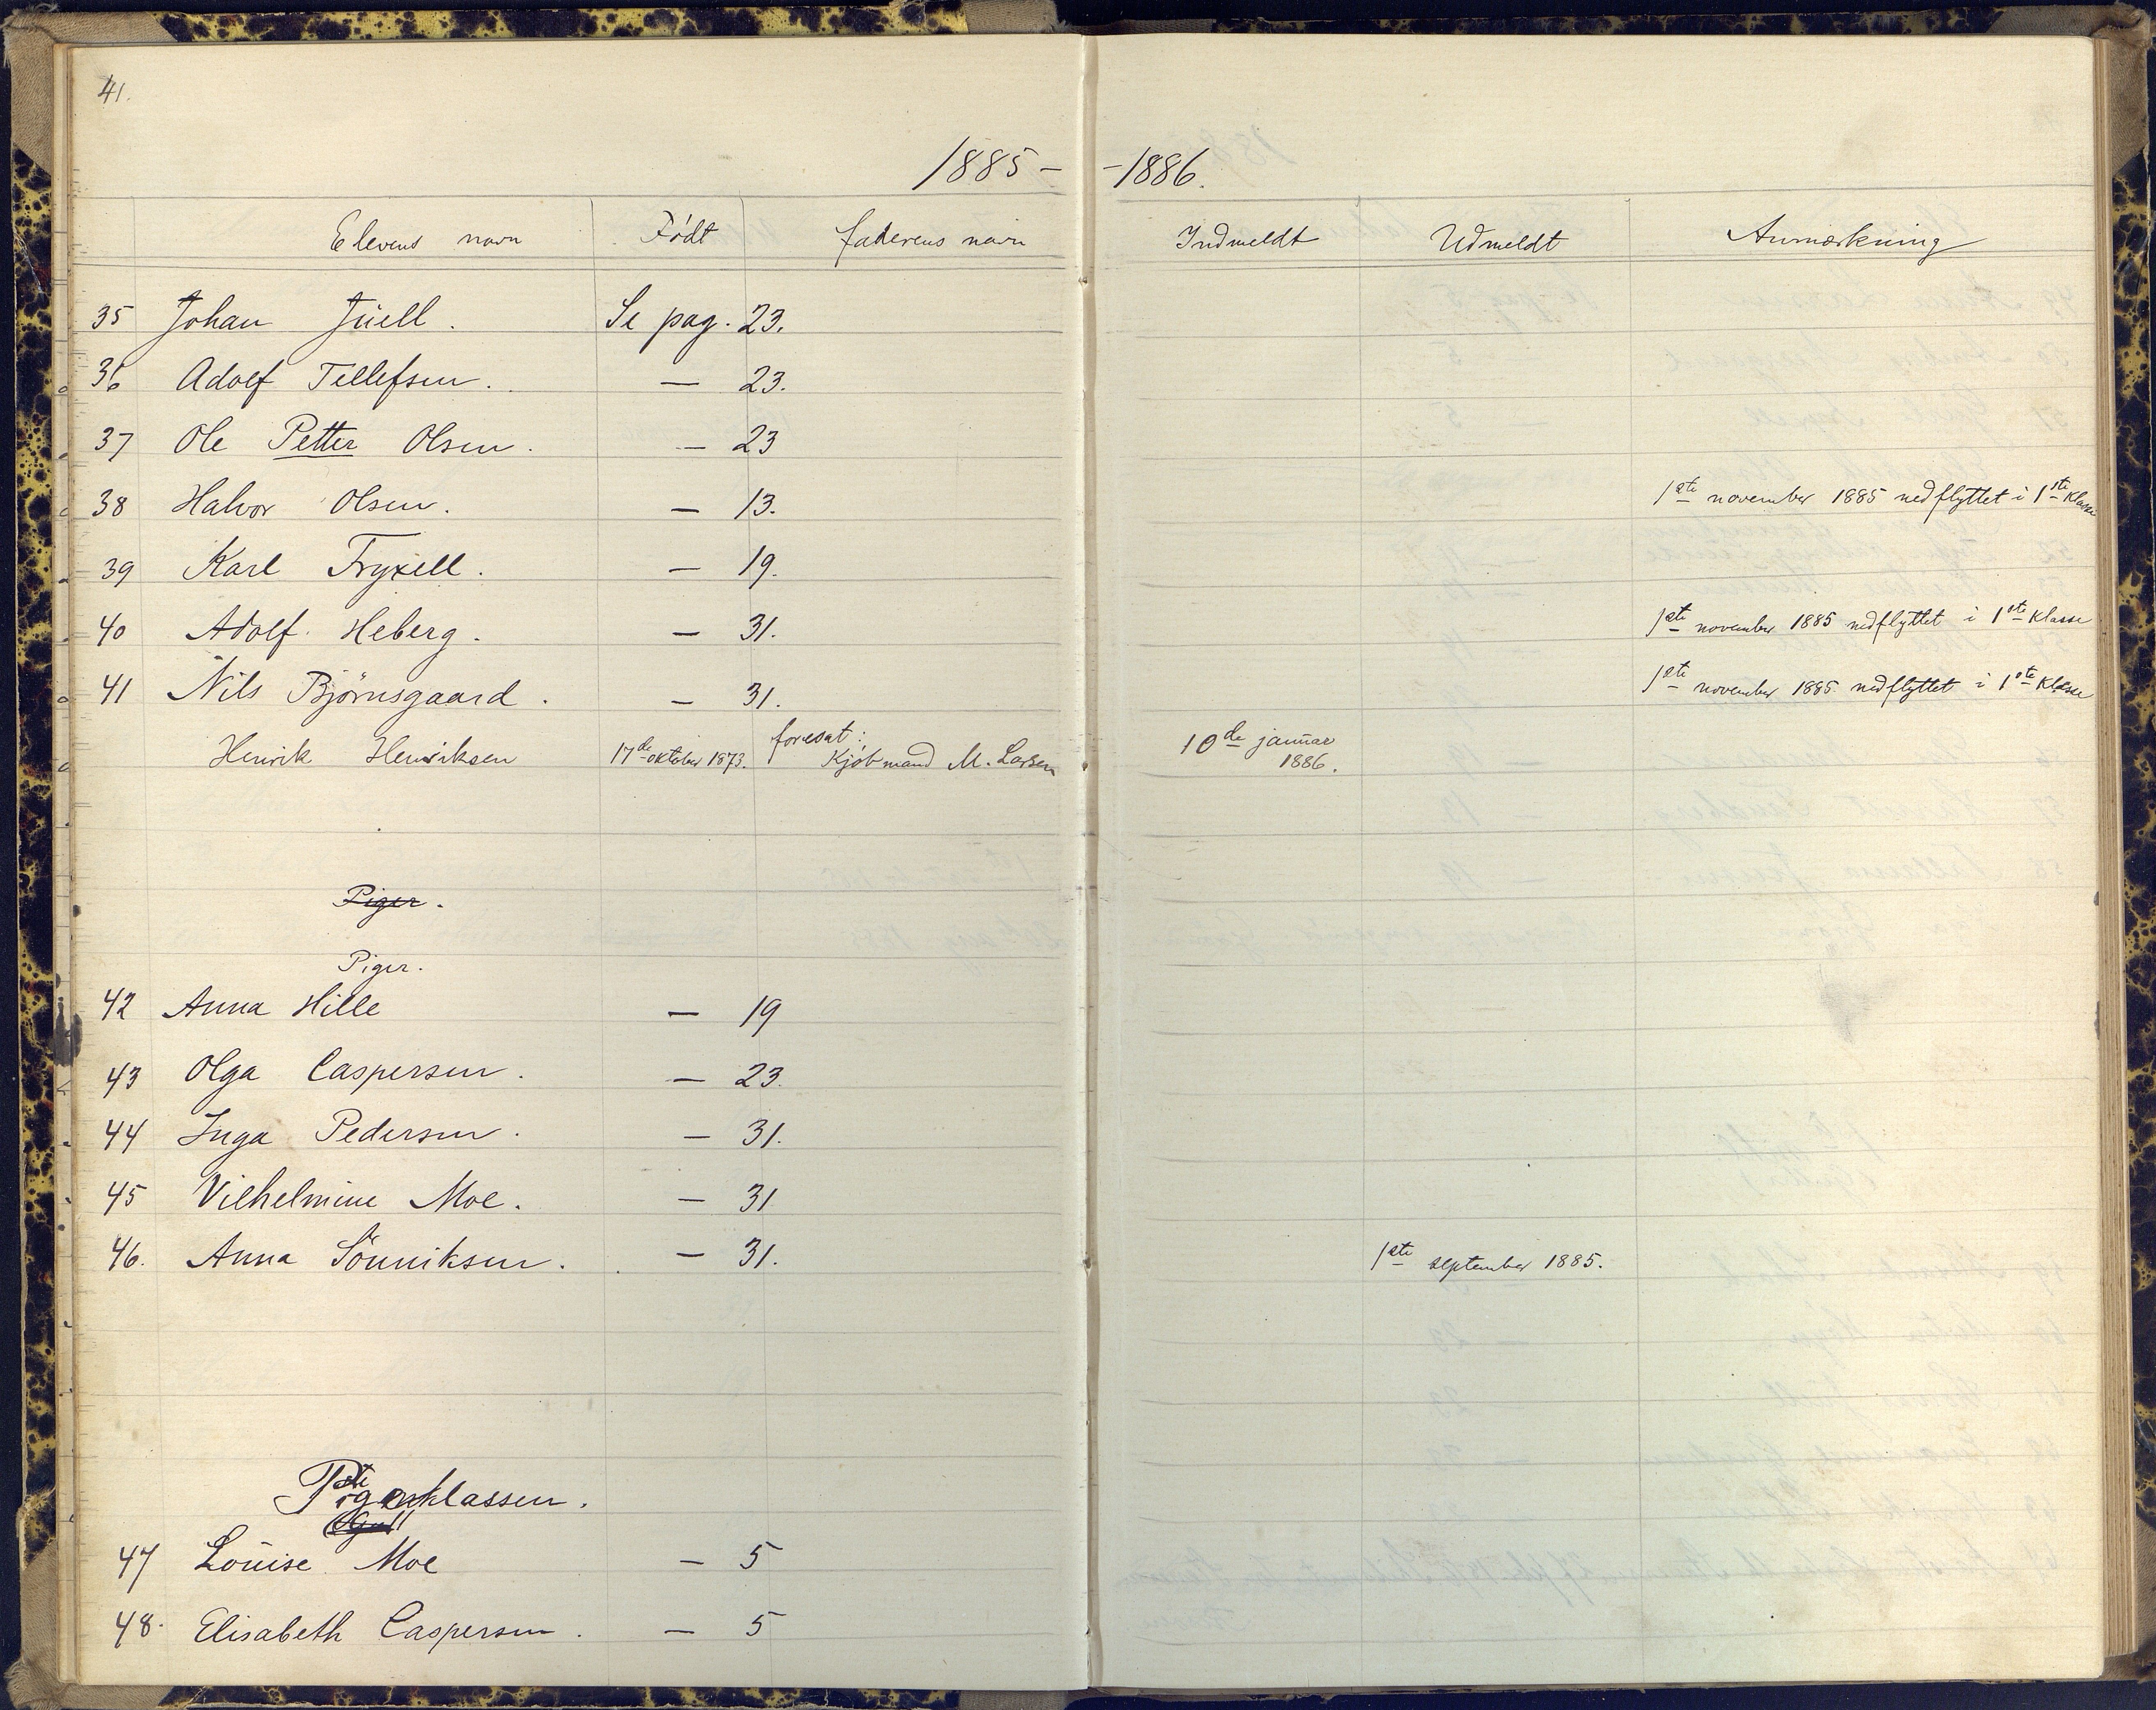 41.
1885 – – 1886.
Elevens navn Født faderens navn Indmeldt Udmeldt Anmærkning
35 Johan Jüell. Se pag. 23.
36 Adolf Tellefsen. — 23.
37 Ole Petter Olsen. — 23
38 Halvor Olsen. — 13. 1ste november 1885 nedflyttet i 1ste klasse
39 Karl Fryxell. — 19.
40 Adolf Heberg. — 31. 1ste november 1885 nedflyttet i 1ste klasse
41 Nils Bjørnsgaard. — 31. 1ste november 1885 nedflyttet i 1ste klasse
Henrik Henriksen 17de oktober 1873. foresat: Kjøbmand M. Larsen 10de januar 1886.
Piger.
Piger.
42 Anna Hille — 19
43 Olga Caspersen. — 23.
44 Inga Pedersen. — 31.
45 Vilhelmine Moe. — 31
46. Anna Sønniksen. — 31. 1ste september 1885.
Pigeklassen.
47 Louise Moe — 5
48. Elisabeth Caspersen. — 5